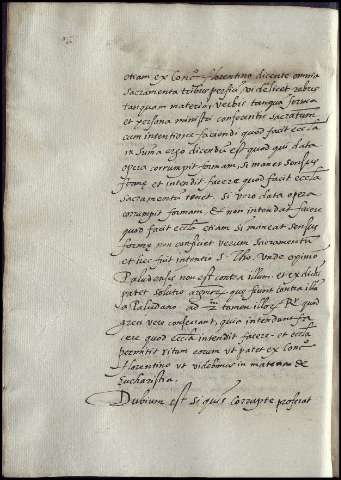 etiam ex Conc.º florentino dicente omnia
sacramenta tribus perfici, videlicet rebus
tanquam materia, verbis tanquã forma
et persona ministri conferentis sacratum
cum intentione faciendi quod facit eccla
in suma ergo dicendũ est quod qui data
opera corrumpit formam, si manet sensus
formę et intendit facere quod facit eccla
sacramentũ tenet. Si vero data opera
corrumpit formam, Et non intendat facere
quod facit eccla etiam si maneat sensus
formę non conficiet verum sacramentũ
et hec fuit intentio S. Tho. Vnde opinio
Paludensis non est contra illum. et ex dictis
patet solutio que fiunt contra illũ
a Paludano. ad tamen illud R. quod
greci vere conficiant, quia intendunt fa
cere quod eccla intendit facere. et eccla
permittit ritum eorum ut patet ex Conc.º
florentino ut videbimus in materia de
Eucharistia.
Dubium est Si quis corrupte proferat